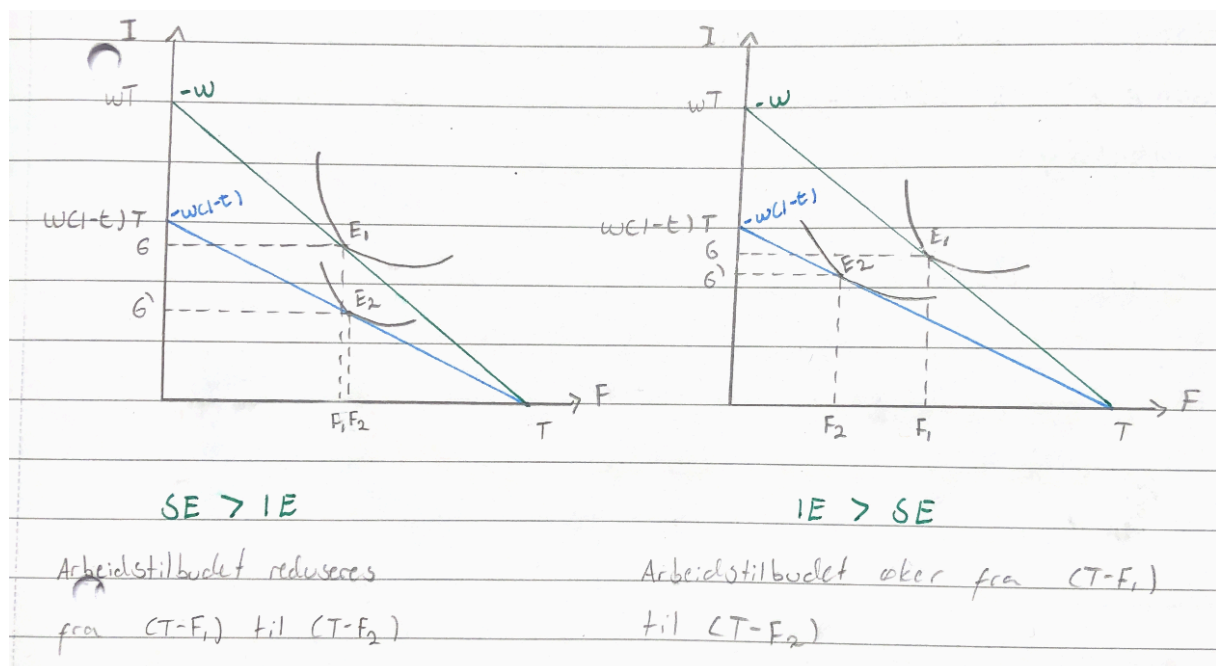 I
wT
-w
w(1-t)T
-w(1-t)
6
E₁
E2
6`
F₁ F₂
T
F
SE > IE
Arbeidstilbudet reduseres
fra (T-F₁) til (T-F₂)
I
wT
-w
w(1-t) T
-w(1-t)
6
E₁
E2
6`
F₂
F₁
T
F
IE > SE
Arbeidstilbudet øker fra (T-F₁)
til (T-F₂)